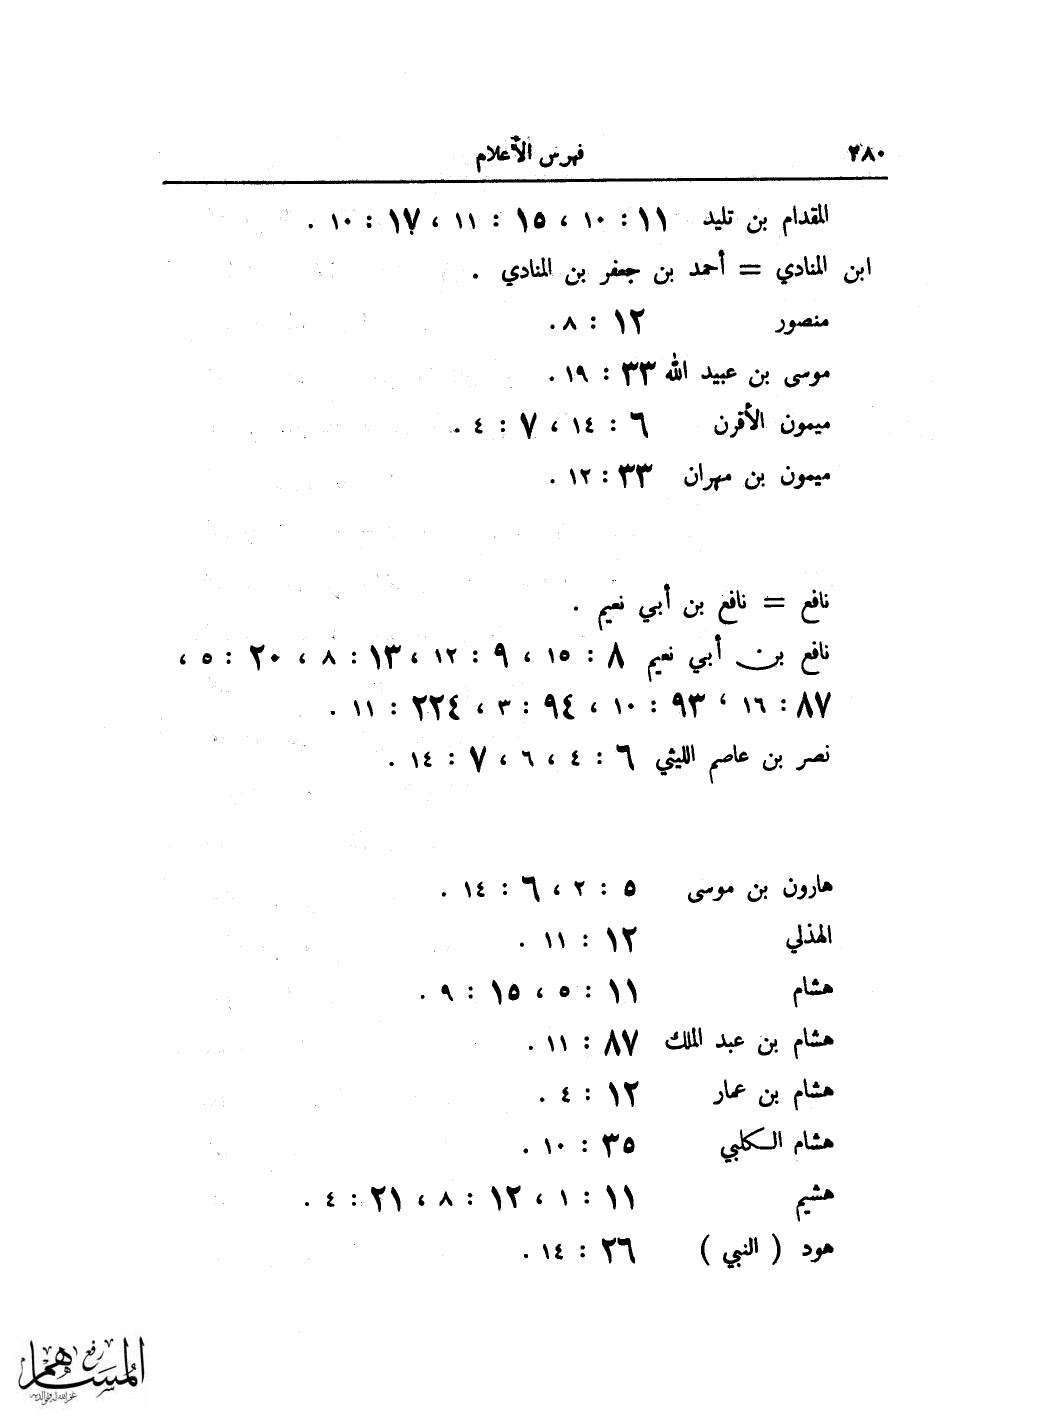 ٢٨٠ فهرس الأعلام
المقدام بن تليد ١١ : ١٠ ، ١٥ : ١١ ، ١٧ : ١٠ .
ابن المنادي = أحمد بن جعفر بن المنادي .
منصور ١٢ : ٨ .
موسى بن عبيد الله ٣٣ : ١٩ .
ميمون الأقرن ٦ : ١٤ ، ٧ : ٤ .
ميمون بن مهران ٣٣ : ١٢ .
نافع = نافع بن أبي نعيم .
نافع بن أبي نعيم ٨ : ١٥ ، ٩ : ١٢ ، ١٣ : ٨ ، ٢٠ : ٥ ،
٨٧ : ١٦ ، ٩٣ : ١٠ ، ٩٤ : ٣ ، ٢٢٤ : ١١ .
نصر بن عاصم الليثي ٦ : ٤ ، ٦ ، ٧ : ١٤ .
هارون بن موسى ٥ : ٢ ، ٦ : ١٤ .
الهذلي ١٢ : ١١ .
هشام ١١ : ٥ ، ١٥ : ٩ .
هشام بن عبد الملك ٨٧ : ١١ .
هشام بن عمار ١٢ : ٤ .
هشام الكلبي ٣٥ : ١٠ .
هشيم ١١ : ١ ، ١٢ : ٨ ، ٢١ : ٤ .
هود ( النبي ) ٢٦ : ١٤ .
رفع
المساهم
غفر الله له ولوالديه